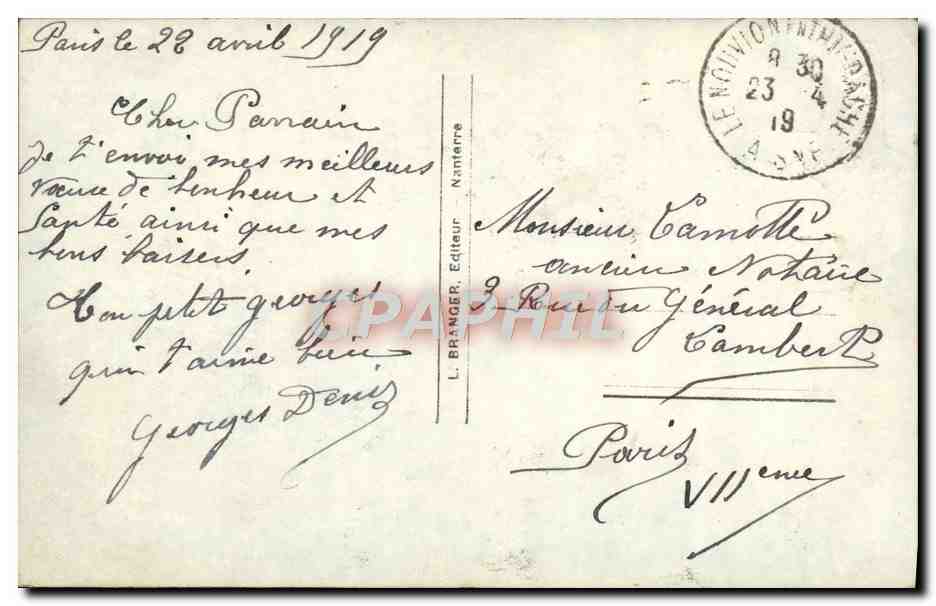 Paris le 22 avril 1919
Cher Parrain
Je t'envoi mes meilleurs
vœux de bonheur et
Santé ainsi que mes
bons baisers.
Ton petit georges
qui t'aime bien
Georges Denis
L. BRANGER, Editeur - Nanterre
LE NOUVION EN THIERACHE
8 30
23 4
19
AISNE
Monsieur Lamotte
ancien Notaire
3 Rue du Général
Lambert
Paris
VIIeme
CPAPHIL